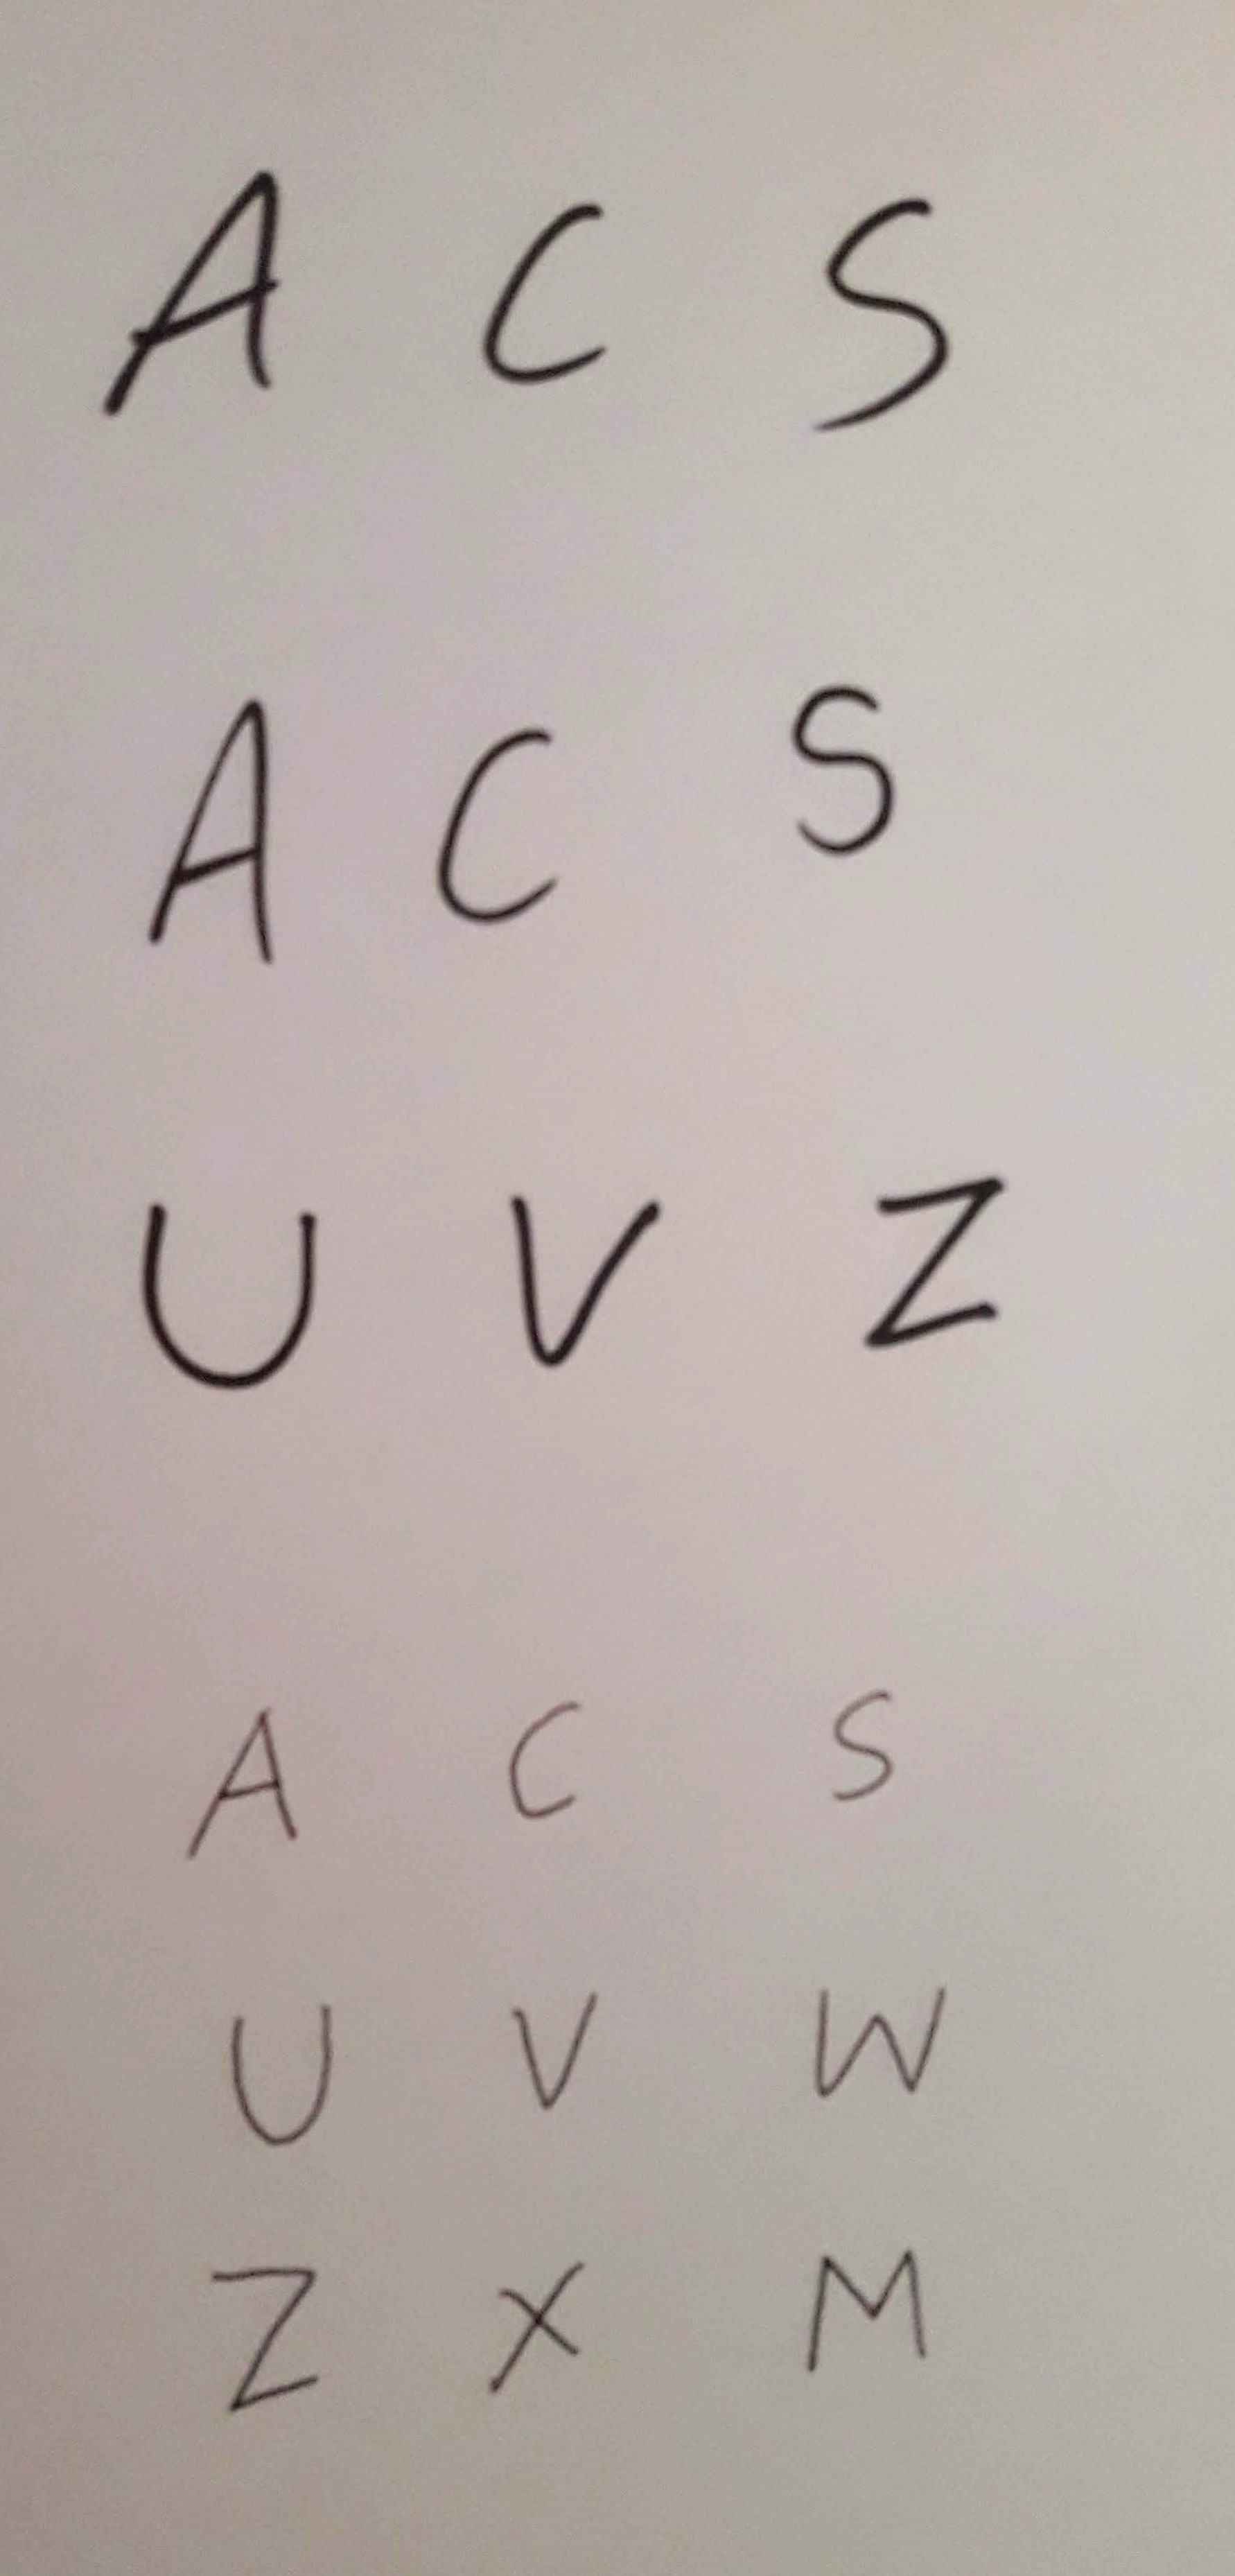 A C S
A C S
U V Z
A C S
U V W
Z X M